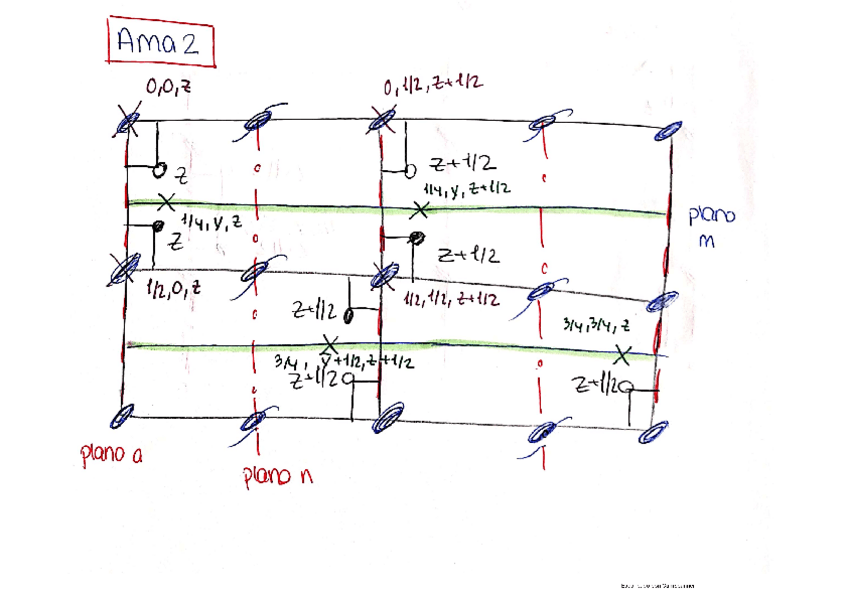 Ama2
0,0,z
0,1/2,z+1/2
z
z+1/2
1/4,y,z+1/2
1/4,y,z
plano
m
z
z+1/2
1/2,0,z
1/2,1/2,z+1/2
z+1/2
3/4,3/4,z
3/4, y+1/2,z+1/2
z+1/2
z+1/2
plano a
plano n